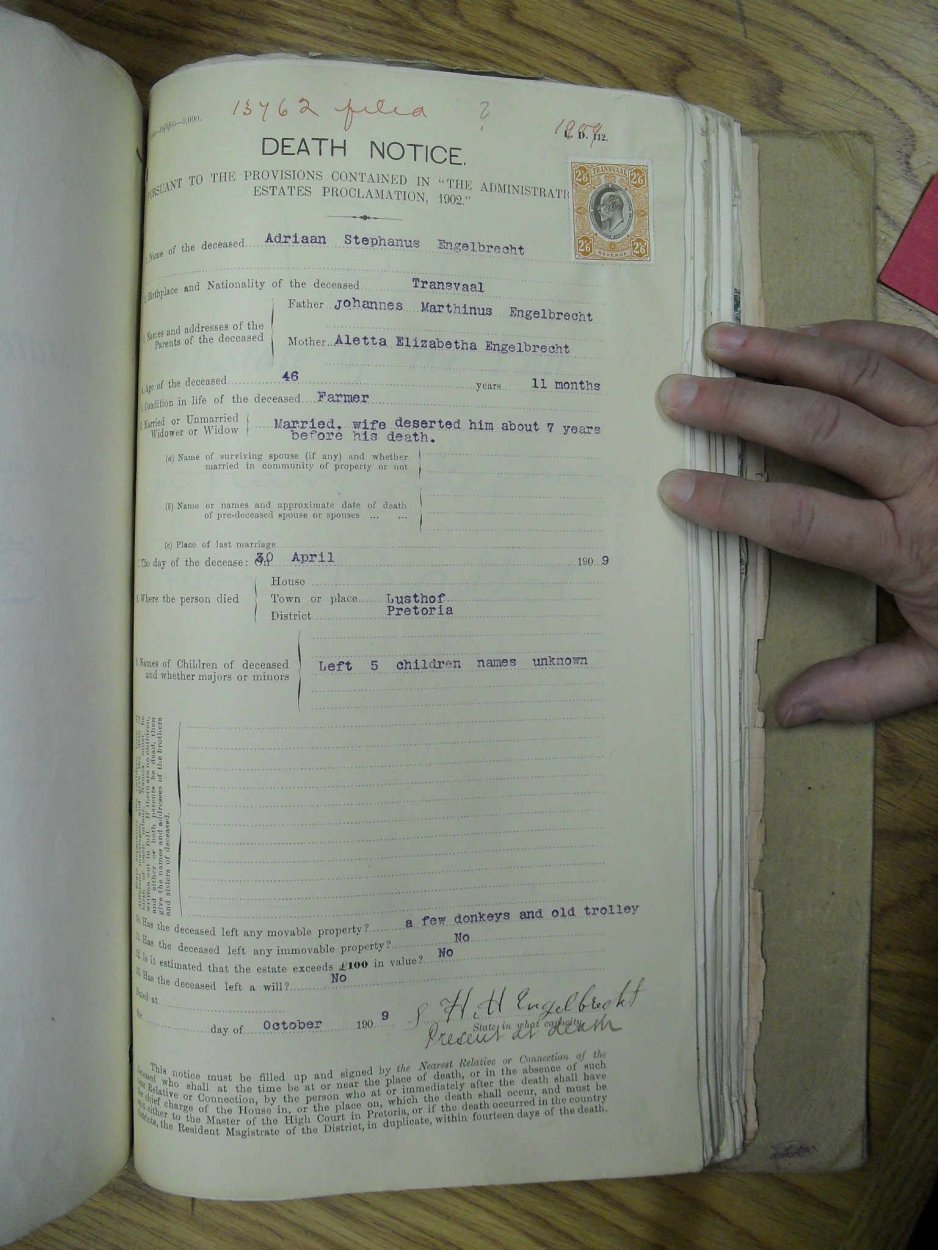 13762 filed ?
1909
L. D. 112.
DEATH NOTICE.
PURSUANT TO THE PROVISIONS CONTAINED IN "THE ADMINISTRATI
ESTATES PROCLAMATION, 1902."
TRANSVAAL
2/6 2/6
2/6 2/6
REVENUE
Name of the deceased Adriaan Stephanus Engelbrecht
Birthplace and Nationality of the deceased Transvaal
Names and addresses of the Parents of the deceased
Father Johannes Marthinus Engelbrecht
Mother Aletta Elizabetha Engelbrecht
4. Age of the deceased 46 years 11 months
Condition in life of the deceased Farmer
Married or Unmarried Widower or Widow
Married, wife deserted him about 7 years
before his death.
(a) Name of surviving spouse (if any) and whether
married in community of property or not
(b) Name or names and approximate date of death
of pre-deceased spouse or spouses ... ...
(c) Place of last marriage
The day of the decease: On 30 April 190 9
House
Where the person died Town or place Lusthof
District Pretoria
Names of Children of deceased
and whether majors or minors
Left 5 children names unknown
written out in full. If there are no children,
and either or both parents be dead, then
give the names and addresses of the brothers
and sisters of deceased.
10. Has the deceased left any movable property? a few donkeys and old trolley
11. Has the deceased left any immovable property? No
12. Is it estimated that the estate exceeds £100 in value? No
13. Has the deceased left a will? No
Dated at
the day of October 190 9
H H Engelbrecht
State in what capacity
Present at death
This notice must be filled up and signed by the Nearest Relative or Connection of the
deceased who shall at the time be at or near the place of death, or in the absence of such
near Relative or Connection, by the person who at or immediately after the death shall have
the chief charge of the House in, or the place on, which the death shall occur, and must be
sent either to the Master of the High Court in Pretoria, or if the death occurred in the country
districts, the Resident Magistrate of the District, in duplicate, within fourteen days of the death.